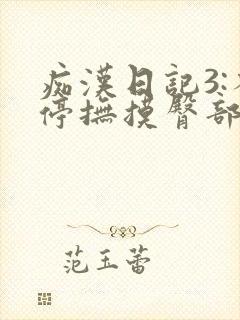 痴漢日記3:
停撫摸臀部
范玉蕾